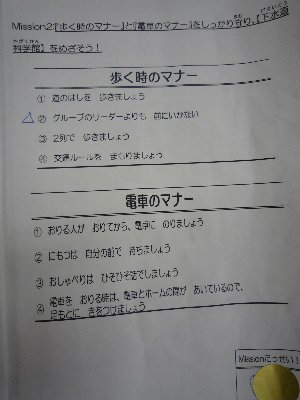 Mission2:『歩く時のマナー』と『電車のマナー』をしっかり守り、【下水道
科学館】をめざそう！
歩く時のマナー
① 道のはしを 歩きましょう
△② グループのリーダーよりも 前にいかない
③ 2列で 歩きましょう
④ 交通ルールを まもりましょう
電車のマナー
① おりる人が おりてから、電車に のりましょう
② にもつは 自分の前で 持ちましょう
③ おしゃべりは ひそひそ話でしましょう
④ 電車を おりる時は、電車とホームの間が あいているので、
足もとに 気をつけましょう
Missionこっせい！